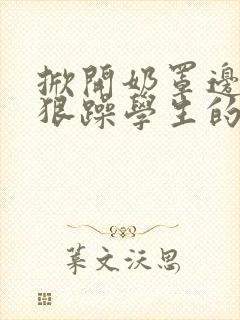 掀開奶罩邊
狠躁學生的
葉文沃思